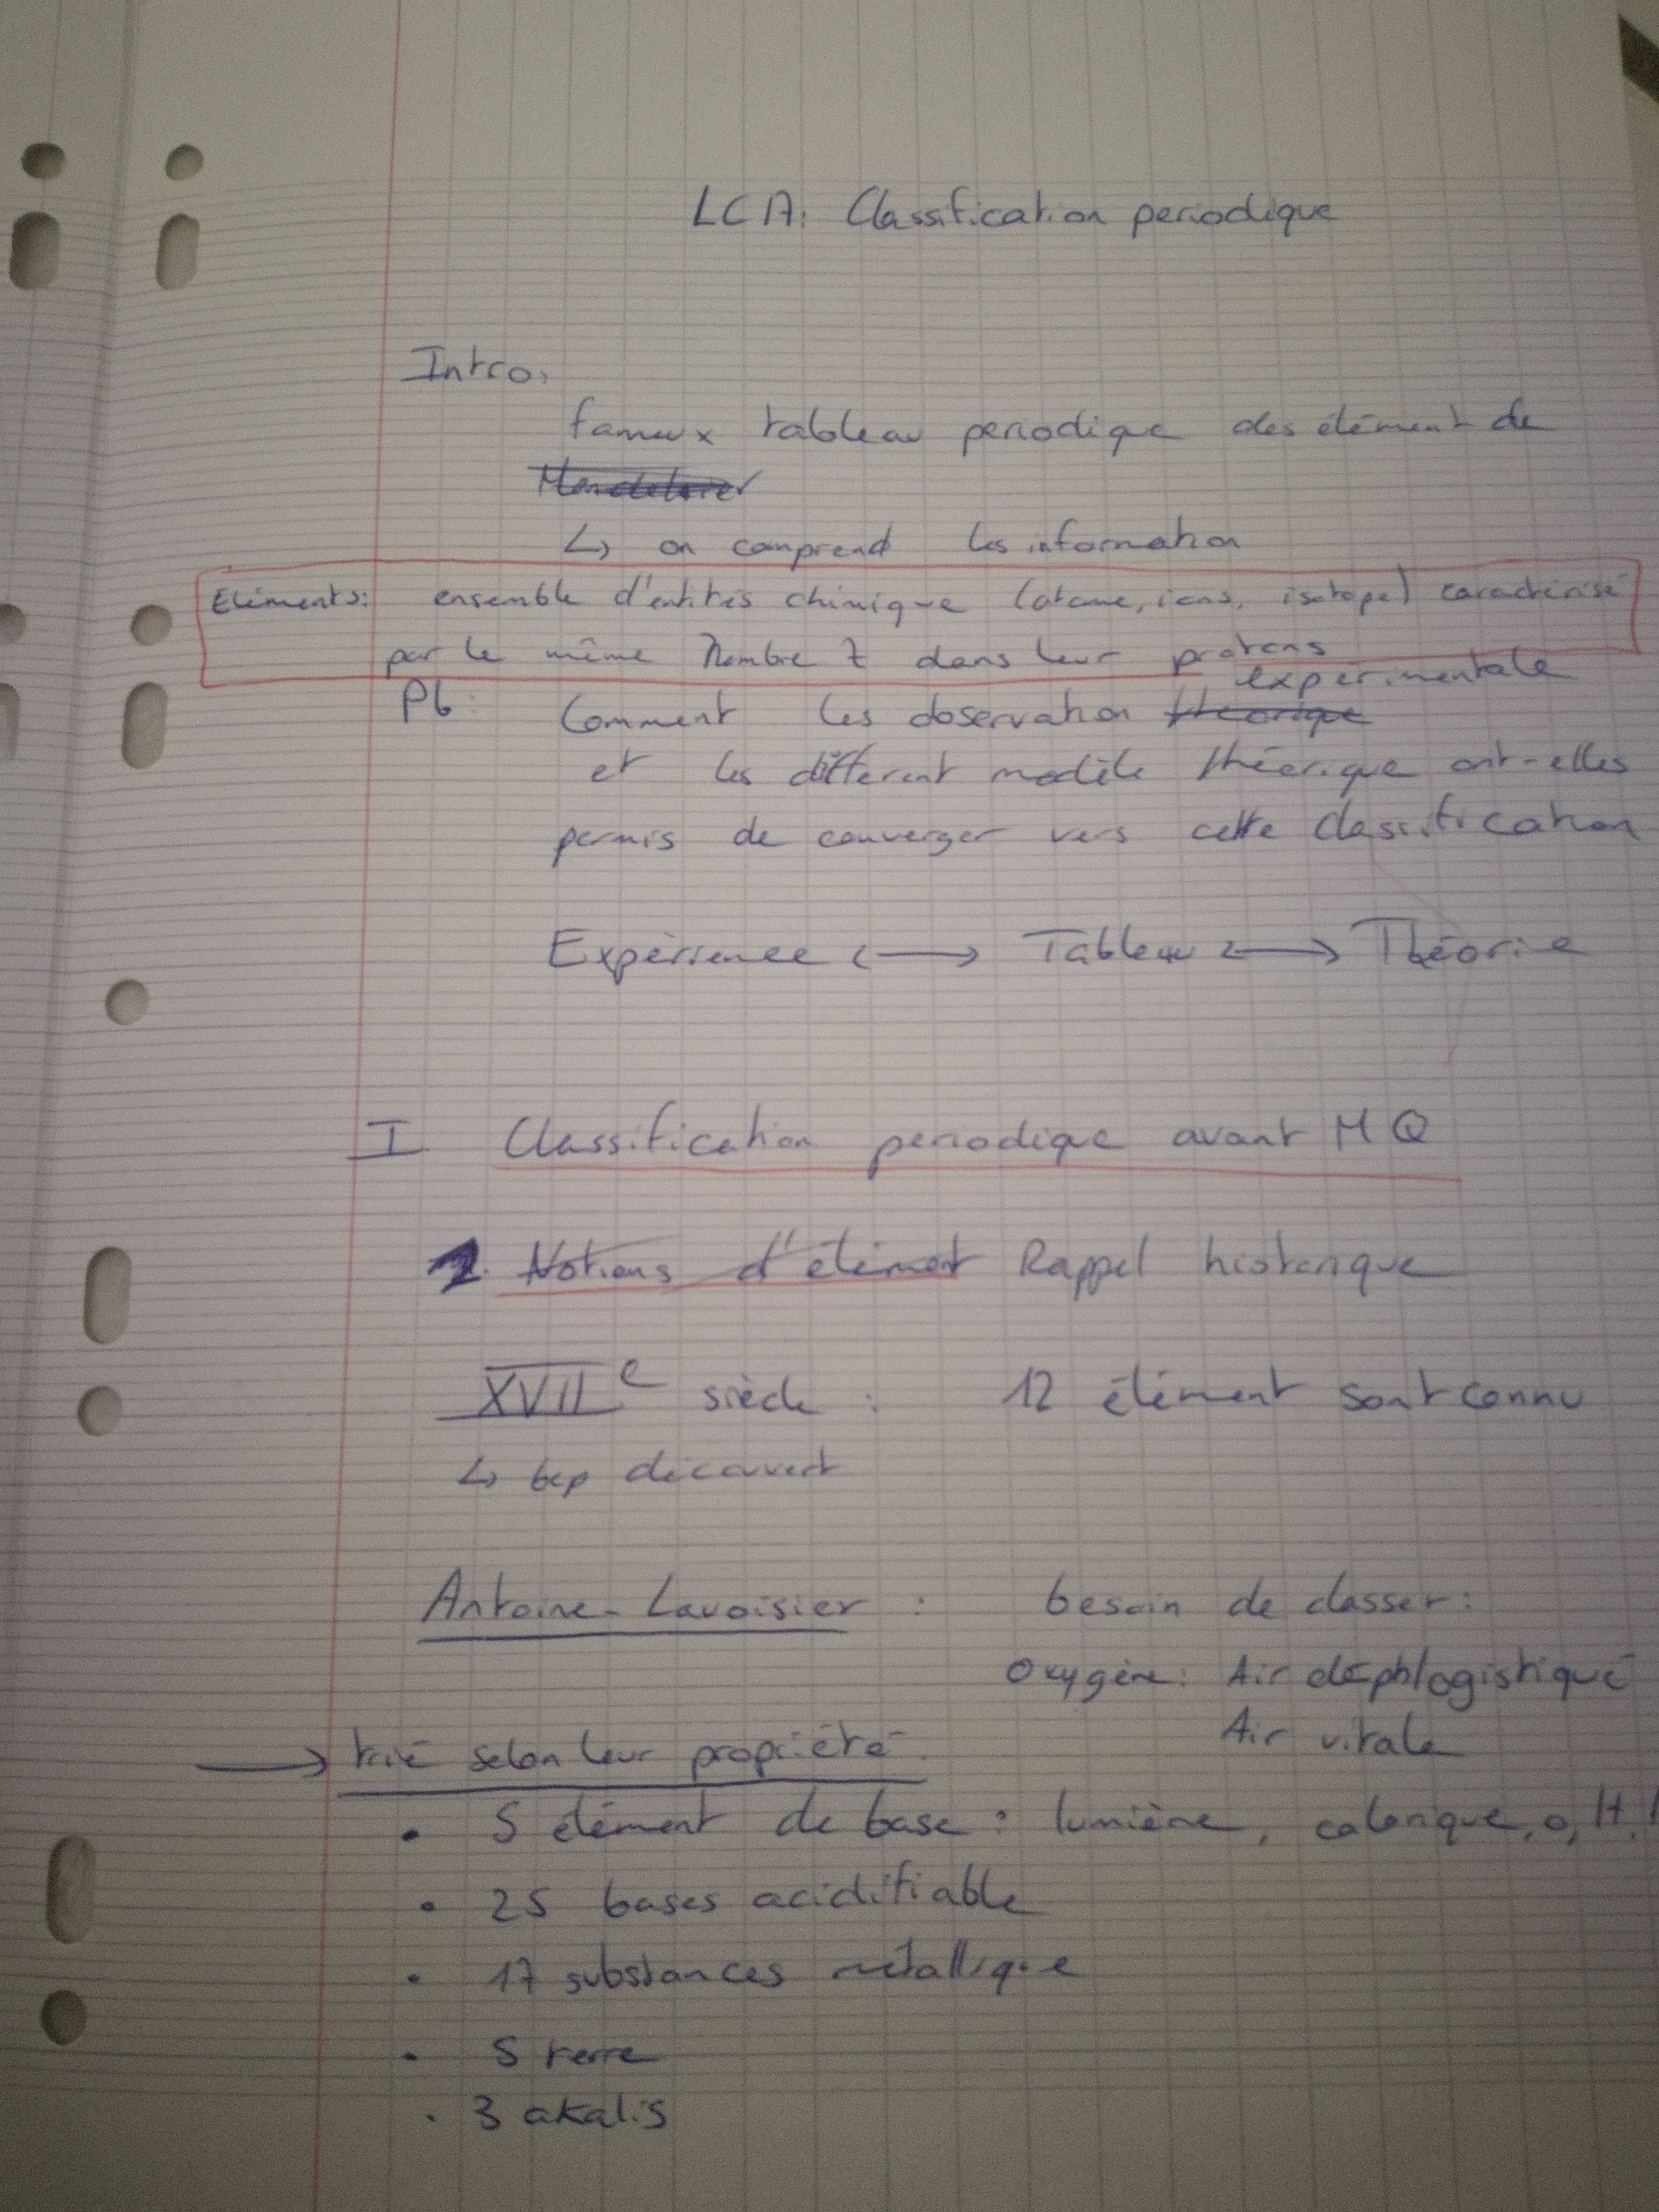 LCA: Classification periodique
Intro:
fameux tableau periodique des élément de
↳ on comprend les information
Eléments: ensemble d'entités chimique (atome, ions, isotope) caractérisé
par le même Nombre Z dans leur protons
experimentale
Pb: Comment les observation theorique
et les différent modèle théorique ont-elles
permis de converger vers cette classification
Expèrience <-> Tableau <-> Théorie
I Classification periodique avant MQ
1. Notions d'élément Rappel historique
XVII e siècle : 12 élément sont connu
↳ bcp découvert
Antoine-Lavoisier : besoin de classer:
Oxygène: Air déphlogistiqué
Air vitale
→ trié selon leur propriété
• 5 élément de base : lumière, calorique, O, H,
• 25 bases acidifiable
• 17 substances métallique
• 5 terre
• 3 akalis